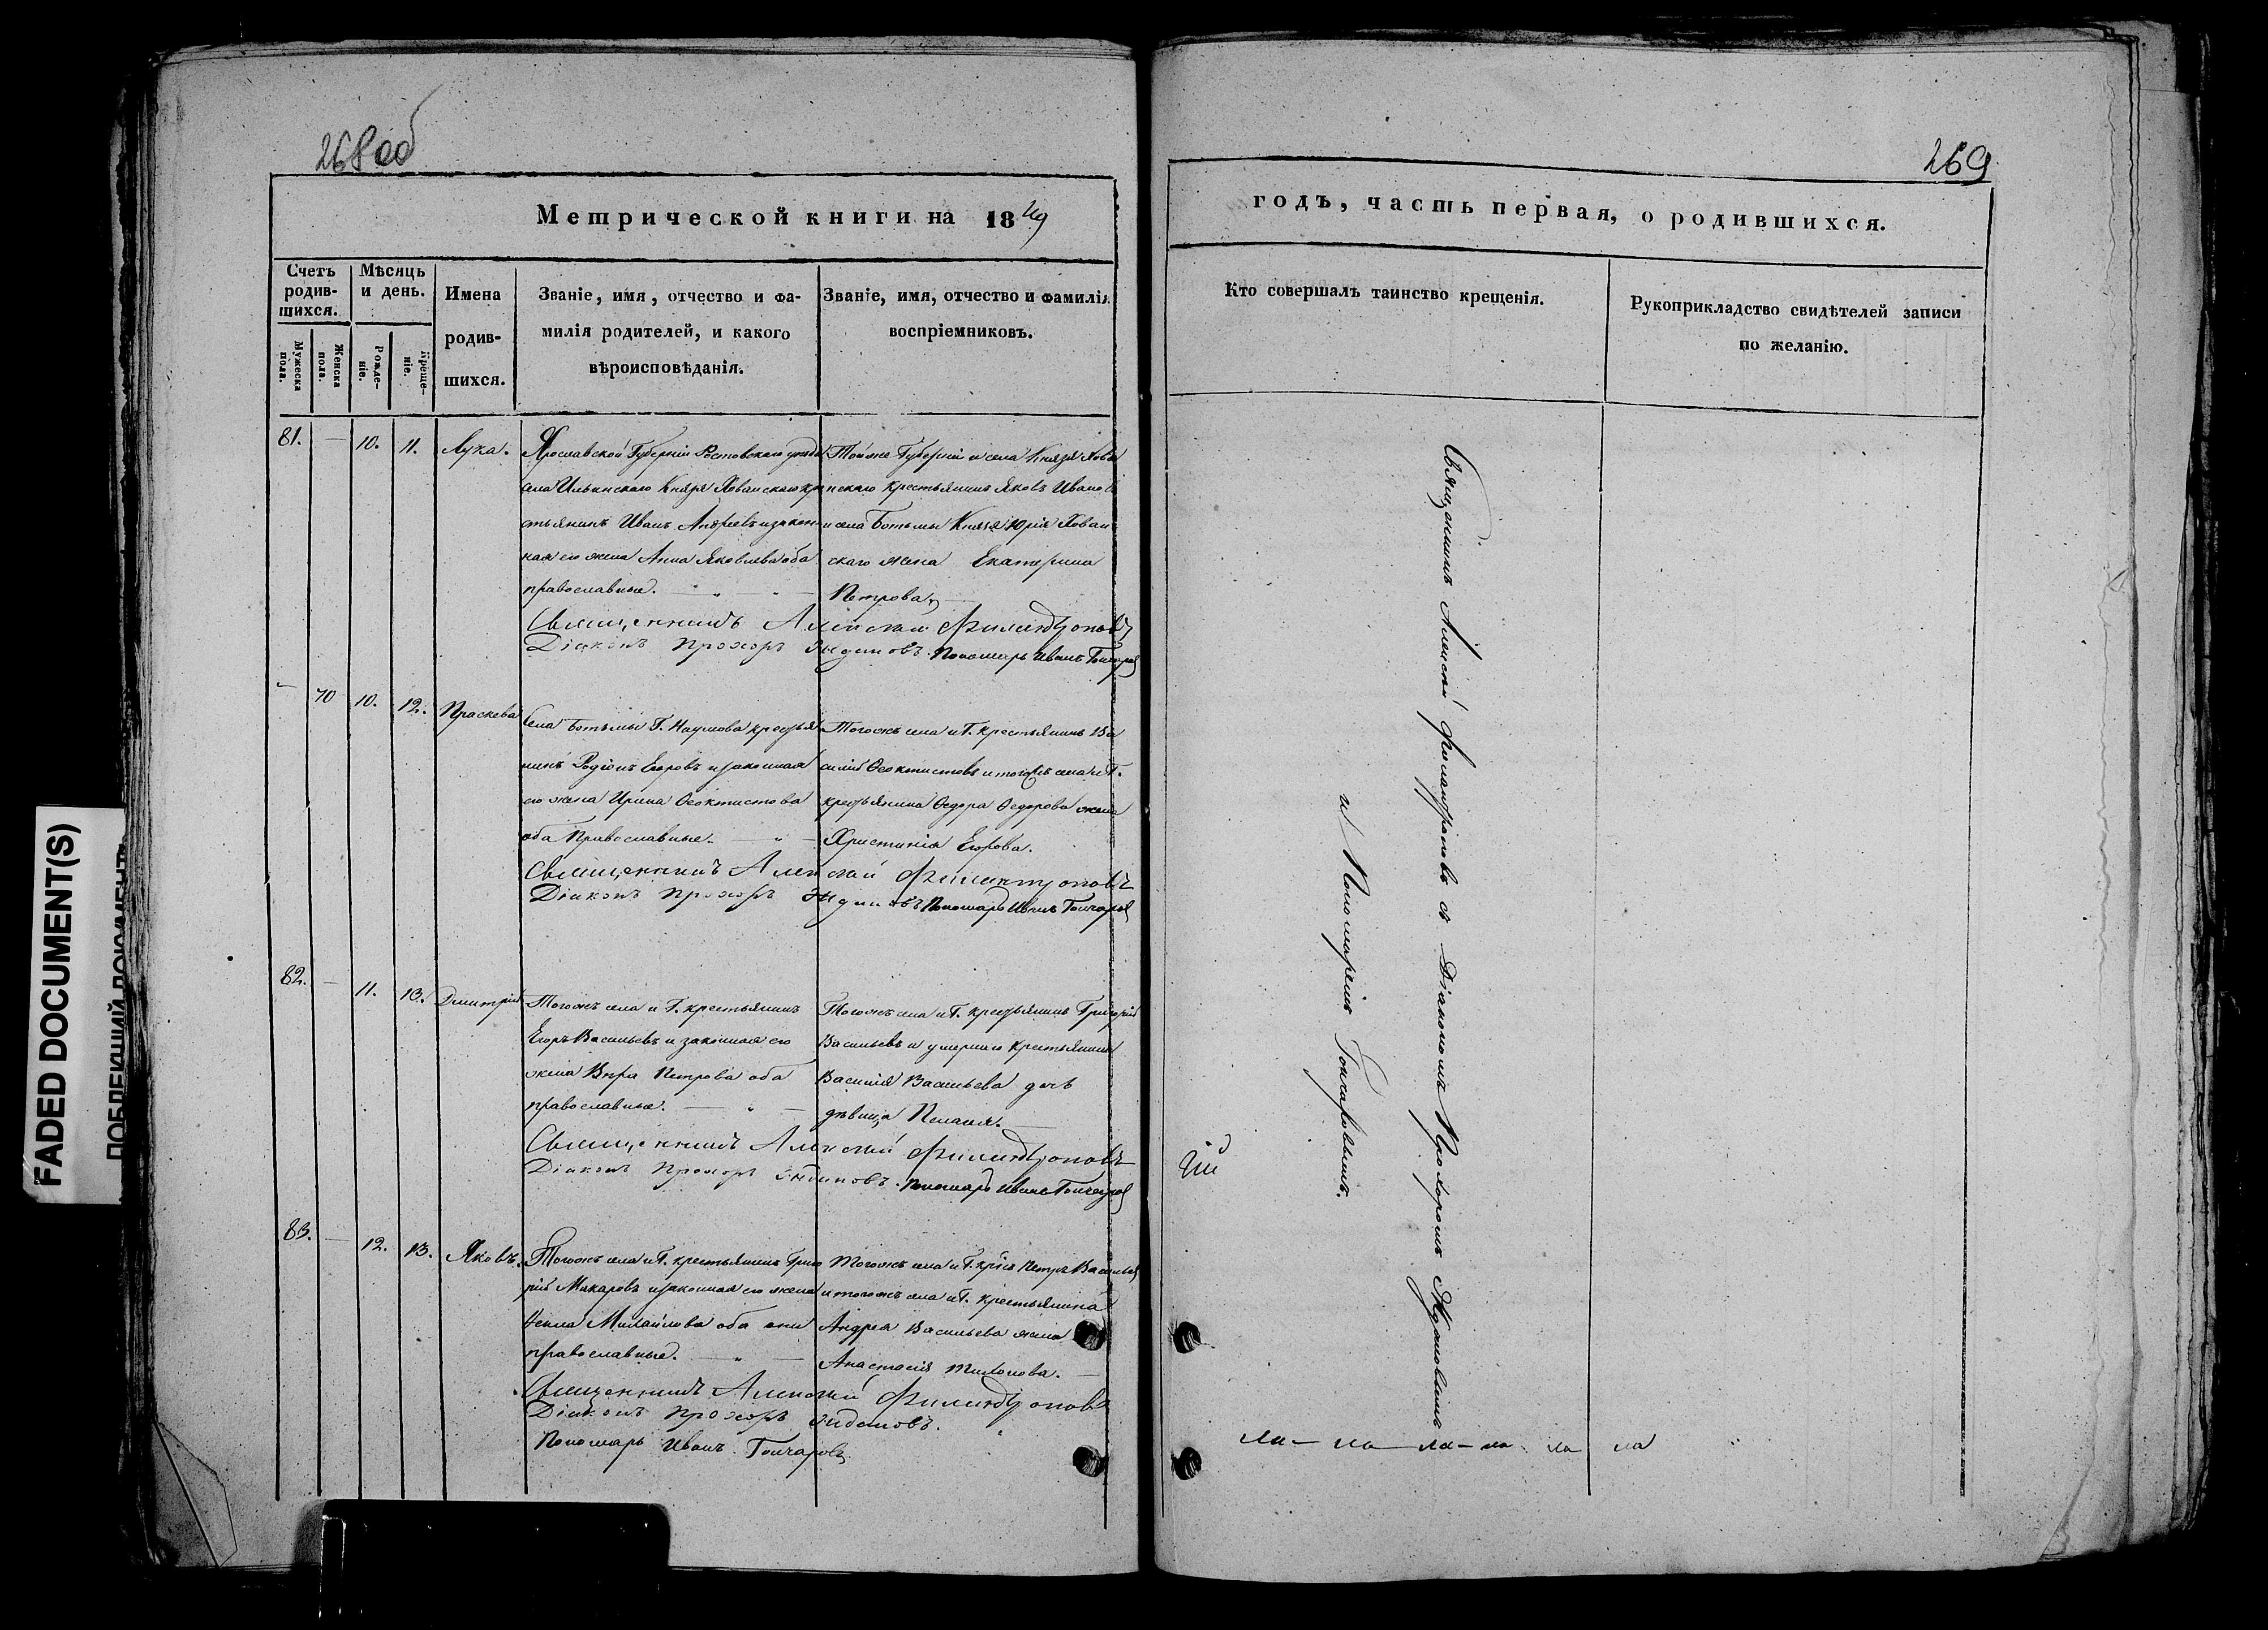 268 об
Метрической книги на 1849
Счетъ родив-шихся.
Мѣсяцъ и день.
Имена родив-шихся.
Званіе, имя, отчество и фа-
милія родителей, и какого
вѣроисповѣданія.
Званіе, имя, отчество и фамилія
воспріемниковъ.
Мужеска пола.
Женска пола.
Рожде-ніе.
Креще-ніе.
81. — 10. 11. Лука.
Ярославской Губерніи Ростовскаго уезда
села Ильинскаго Князя Хованскаго кре
стьянинъ Иванъ Андреевъ и закон
ная его жена Анна Яковлева оба
православные.
Тойже Губерніи и села Князя Хова
нскаго крестьянинъ Яковъ Иванов
и села Ботьмы Князя Юрія Хован
скаго жена Екатерина
Петрова.
Священникъ Алексѣй Филантроповъ
Діаконъ Прохоръ
Пономарь Иванъ Гончаров
— 70 10. 12. Праскева
Села Ботьмы Г. Наумова крестья
нинъ Родіонъ Егоровъ и законная
его жена Ирина Феоктистова
оба Православные.
Тогожъ села и Г. крестьянинъ Ва
силій Феоктистовъ и тогожъ села и Г.
крестьянина Федора Федорова жена
Христинія Егорова.
Священникъ Алексѣй Филантроповъ
Діаконъ Прохоръ
Пономарь Иванъ Гончаров
82. — 11. 13. Дмитрій
Тогожъ села и Г. крестьянинъ
Егоръ Васильевъ и законная его
жена Вѣра Петрова оба
православные.
Тогожъ села и Г. крестьянинъ Григорій
Васильевъ и умершаго крестьянина
Василія Васильева дочь
дѣвица Пелагія.
Священникъ Алексѣй Филантроповъ
Діаконъ Прохоръ
Пономарь Иванъ Гончаров
83. — 12. 13. Яковъ.
Тогожъ села и Г. крестьянинъ Григо
рій Макаровъ и законная его жена
Михайлова оба они
православные.
Тогожъ села и Г. Петръ Васильев
и тогожъ села и Г. крестьянина
Андрея Васильева жена
Анастасія Тихонова.
Священникъ Алексѣй Филантроповъ
Діаконъ Прохоръ
Пономарь Иванъ Гончаровъ
269
годъ, часть первая, о родившихся.
Кто совершалъ таинство крещенія.
Рукоприкладство свидѣтелей записи
по желанію.
Священникъ Алексѣй Филантроповъ съ Діакономъ Прохоромъ
и Пономаремъ Гончаровымъ.
FADED DOCUMENT(S)